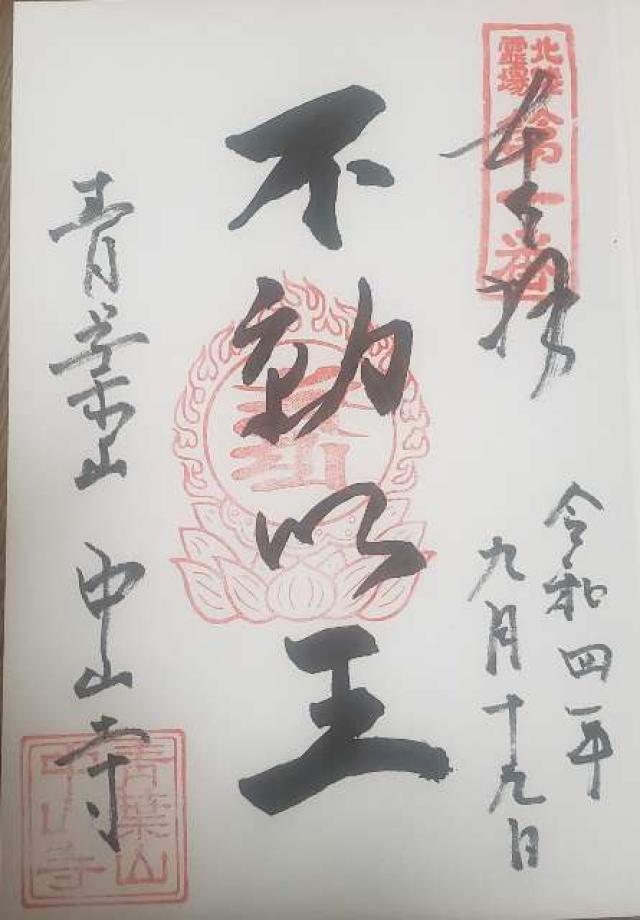 北陸
霊場
第一番
奉拝
令和四年
九月十九日
不動明王
青葉山 中山寺
青葉山
中山寺